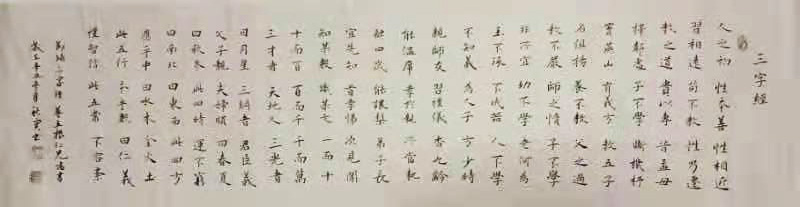 三字經
人之初 性本善 性相近
習相遠 苟不教 性乃遷
教之道 貴以專 昔孟母
擇鄰處 子不學 斷機杼
竇燕山 有義方 教五子
名俱揚 養不教 父之過
教不嚴 師之惰 子不學
非所宜 幼不學 老何為
玉不琢 不成器 人不學
不知義 為人子 方少時
親師友 習禮儀 香九齡
能溫席 孝於親 所當執
融四歲 能讓梨 弟子長
宜先知 首孝悌 次見聞
知某數 識某文 一而十
十而百 百而千 千而萬
三才者 天地人 三光者
日月星 三綱者 君臣義
父子親 夫婦順 曰春夏
曰秋冬 此四時 運不窮
曰南北 曰東西 此四方
應乎中 曰水木 金火土
此五行 本乎數 曰仁義
禮智信 此五常 不容紊
三字經 書